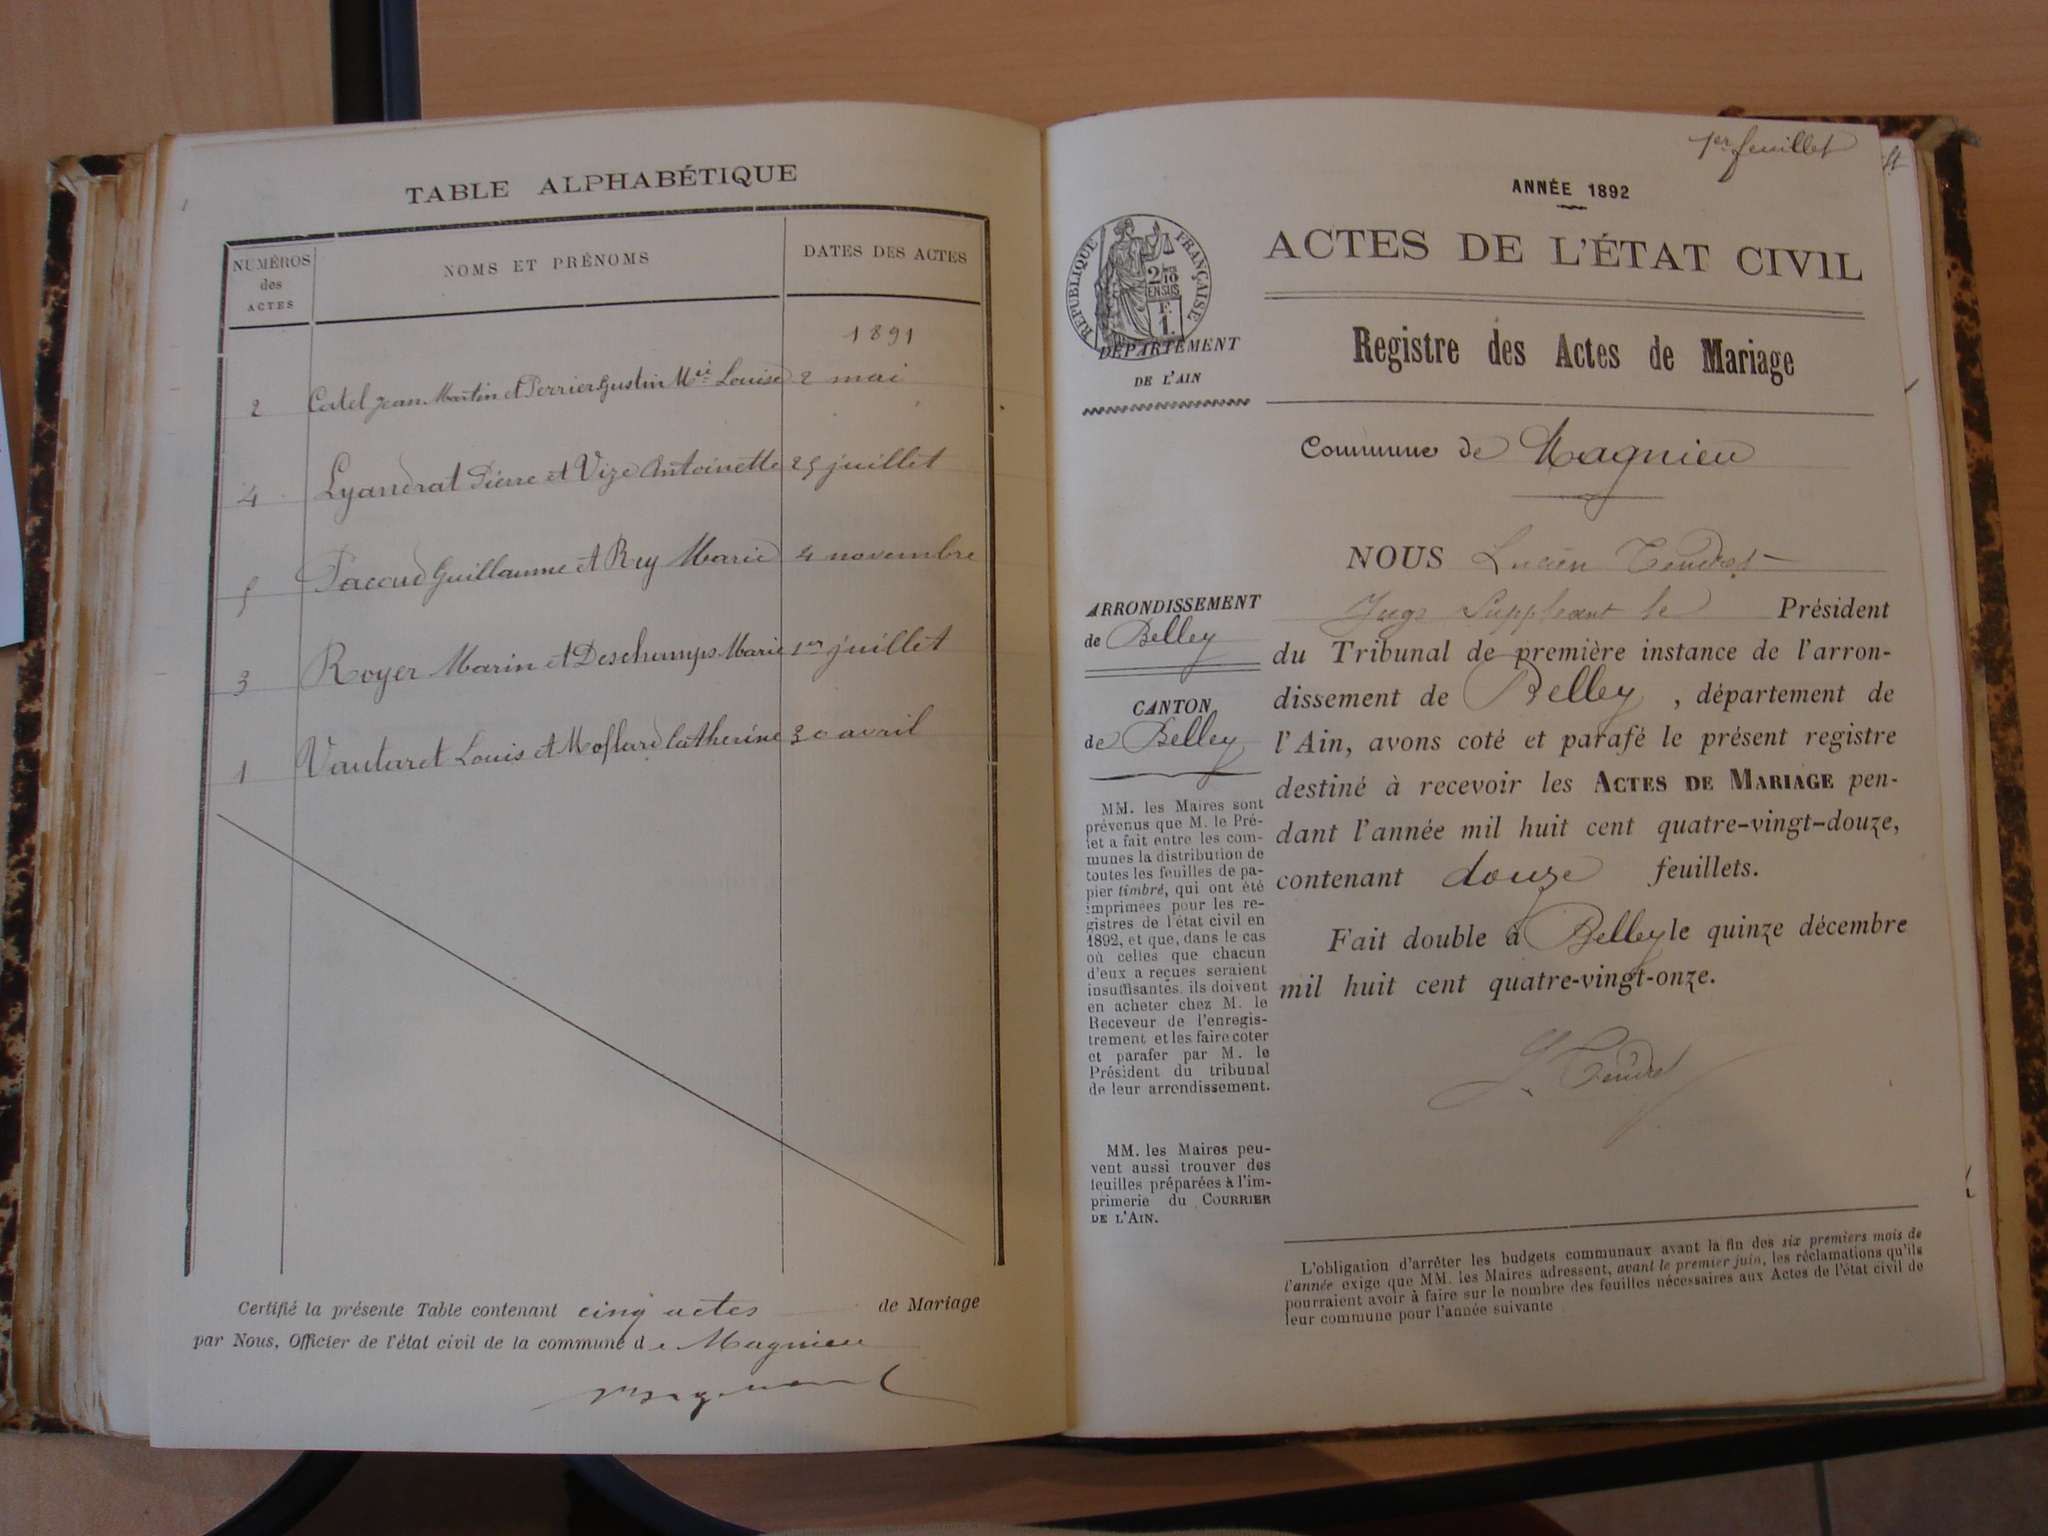 TABLE ALPHABÉTIQUE
NUMÉROS des ACTES
NOMS ET PRÉNOMS
DATES DES ACTES
1891
2 Catel Jean Martin et Perrier Gustin Mie Louise 2 mai
4 Lyandrat Pierre et Vize Antoinette 25 juillet
5 Paccoud Guillaume et Rey Marie 4 novembre
3 Royer Marin et Deschamps Marie 1er juillet
1 Vautaret Louis et Moflard Catherine 30 avril
Certifié la présente Table contenant cinq actes de Mariage
par Nous, Officier de l'état civil de la commune de Magnieu
1er feuillet
ANNÉE 1892
ACTES DE L'ÉTAT CIVIL
RÉPUBLIQUE FRANÇAISE
2/10
EN SUS
F.
1.
DÉPARTEMENT
DE L'AIN
Registre des Actes de Mariage
Commune de Magnieu
ARRONDISSEMENT
de Belley
CANTON
de Belley
MM. les Maires sont
prévenus que M. le Pré-
fet a fait entre les com-
munes la distribution de
toutes les feuilles de pa-
pier timbré, qui ont été
imprimées pour les re-
gistres de l'état civil en
1892, et que, dans le cas
où celles que chacun
d'eux a reçues seraient
insuffisantes, ils doivent
en acheter chez M. le
Receveur de l'enregis-
trement et les faire coter
et parafer par M. le
Président du tribunal
de leur arrondissement.
MM. les Maires peu-
vent aussi trouver des
feuilles préparées à l'im-
primerie du COURRIER
DE L'AIN.
NOUS Lucien Tendret
Juge Suppléant le Président
du Tribunal de première instance de l'arron-
dissement de Belley, département de
l'Ain, avons coté et parafé le présent registre
destiné à recevoir les ACTES DE MARIAGE pen-
dant l'année mil huit cent quatre-vingt-douze,
contenant douze feuillets.
Fait double à Belley le quinze décembre
mil huit cent quatre-vingt-onze.
L. Tendret
L'obligation d'arrêter les budgets communaux avant la fin des six premiers mois de
l'année exige que MM. les Maires adressent, avant le premier juin, les réclamations qu'ils
pourraient avoir à faire sur le nombre des feuilles nécessaires aux Actes de l'état civil de
leur commune pour l'année suivante